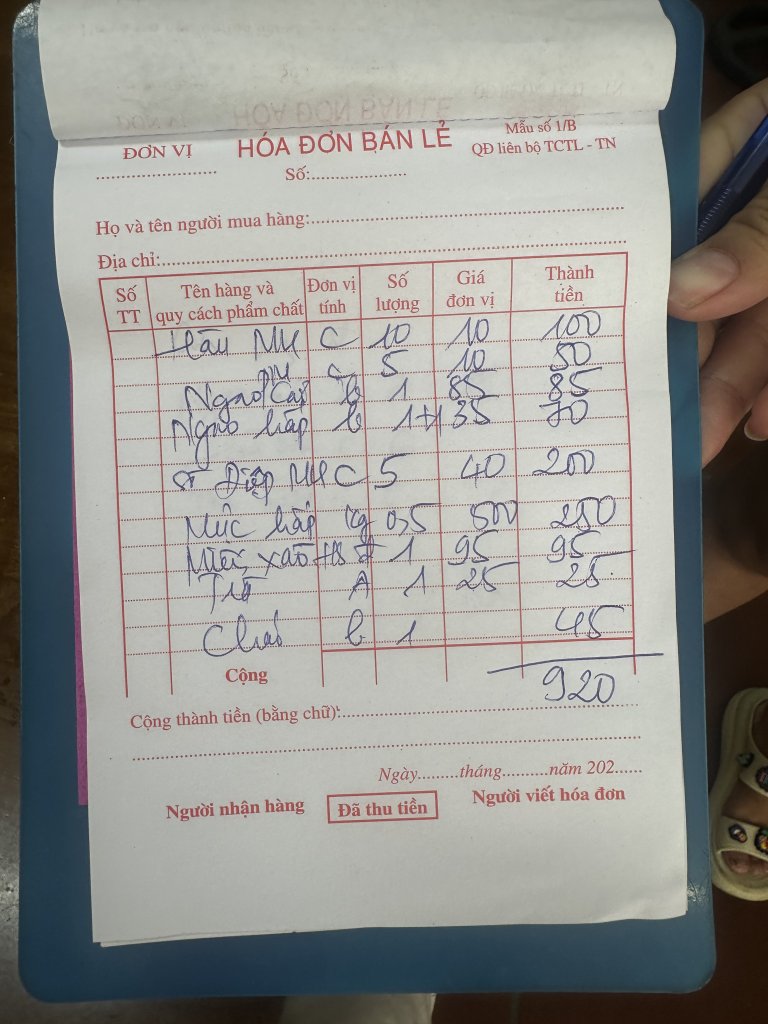 ĐƠN VỊ HÓA ĐƠN BÁN LẺ Mẫu số 1/B
QĐ liên bộ TCTL - TN
Số:
Họ và tên người mua hàng:
Địa chỉ:
Số TT Tên hàng và quy cách phẩm chất Đơn vị tính Số lượng Giá đơn vị Thành tiền
Hàu MH C 10 10 100
PM C 5 10 50
Ngao b 1 85 85
Ngao hấp b 1+1 35 70
Điệp MH C 5 40 200
Mực hấp kg 0,5 500 250
Miến xào HS đ 1 95 95
Trà A 1 25 25
Cháo b 1 45
Cộng 920
Cộng thành tiền (bằng chữ):
Ngày tháng năm 202
Người nhận hàng Đã thu tiền Người viết hóa đơn